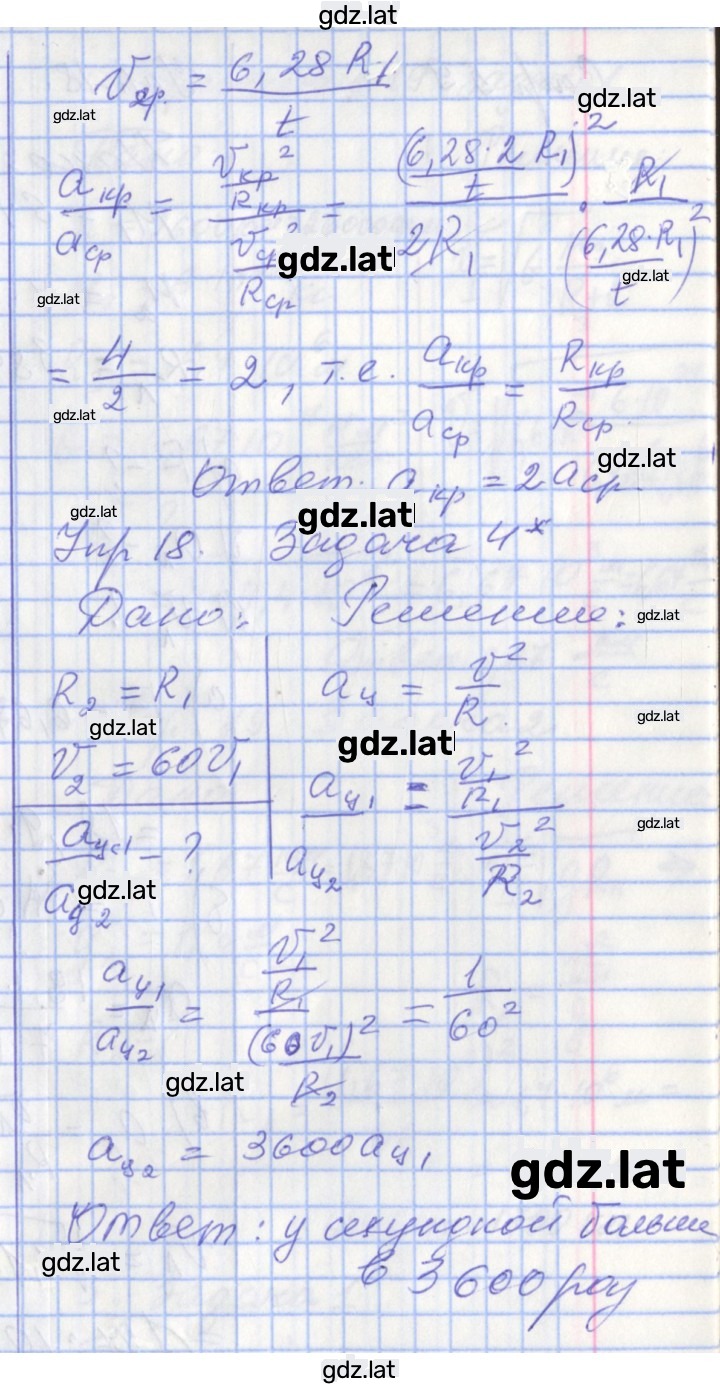 gdz.lat
v ср. = 6,28 R₁ / t
gdz.lat
gdz.lat
aкр / aср = (vкр² / Rкр) / (vср² / Rср) = (6,28·2 R₁ / t)² / 2R₁ · R₁ / (6,28·R₁ / t)²
gdz.lat
gdz.lat
gdz.lat
= 4/2 = 2, т.е. aкр / aср = Rкр / Rср
gdz.lat
gdz.lat
Ответ. aкр = 2 aср.
gdz.lat
gdz.lat
Упр 18. Задача 4*
Дано: Решение:
gdz.lat
R₂ = R₁
aц = v² / R.
gdz.lat
gdz.lat
v₂ = 60v₁
gdz.lat
aц₁ / aц₂ = (v₁² / R₁) / (v₂² / R₂)
gdz.lat
aц1 / aц2 - ?
gdz.lat
aц₁ / aц₂ = (v₁² / R₁) / ((60v₁)² / R₂) = 1 / 60²
gdz.lat
aц₂ = 3600aц₁
gdz.lat
Ответ: у секундной больше
gdz.lat
в 3600 раз
gdz.lat